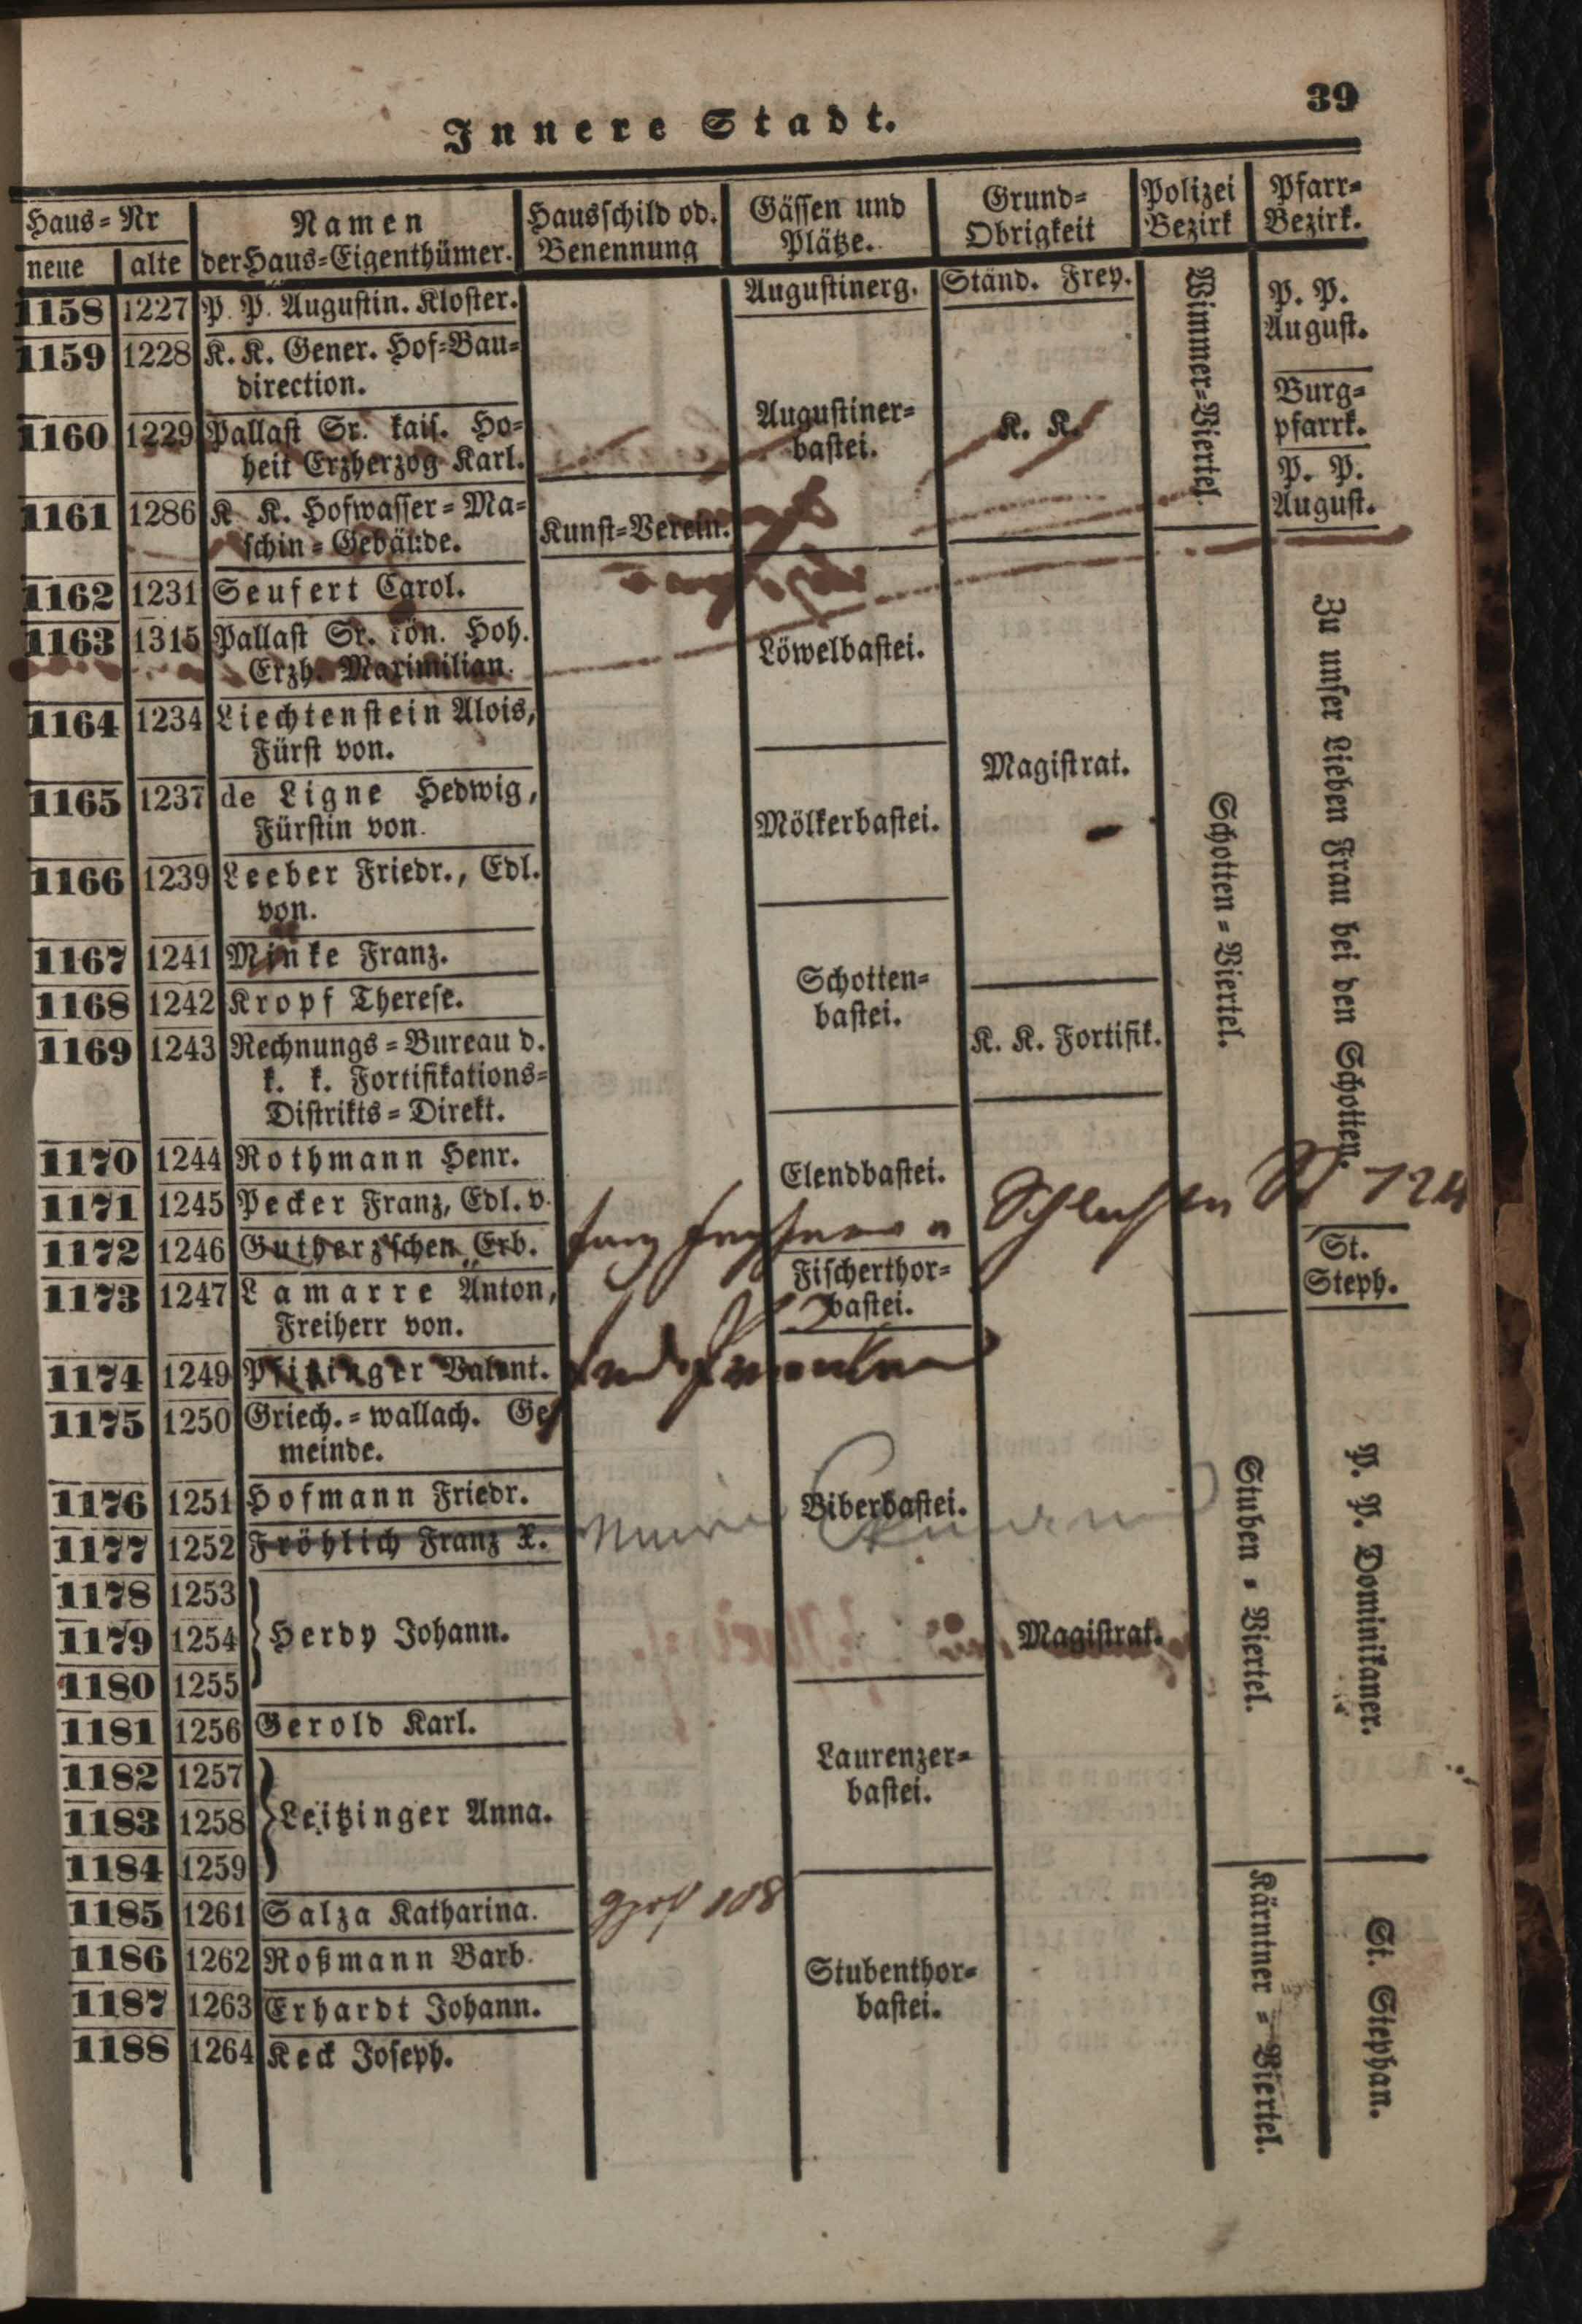 39
Innere Stadt.
Haus-Nr
neue alte
Namen
der Haus-Eigenthümer.
Hausschild od.
Benennung
Gässen und
Plätze.
Grund-
Obrigkeit
Polizei
Bezirk
Pfarr-
Bezirk.
1158 1227 P. P. Augustin. Kloster.
1159 1228 K. K. Gener. Hof-Bau-
direction.
1160 1229 Pallast Sr. kais. Ho-
heit Erzherzog Karl.
1161 1286 K. K. Hofwasser-Ma-
schin-Gebäude.
1162 1231 Seufert Carol.
1163 1315 Pallast Sr. kön. Hoh.
Erzh. Maximilian.
1164 1234 Liechtenstein Alois,
Fürst von.
1165 1237 de Ligne Hedwig,
Fürstin von.
1166 1239 Leeber Friedr., Edl.
von.
1167 1241 Minke Franz.
1168 1242 Kropf Therese.
1169 1243 Rechnungs-Bureau d.
k. k. Fortifikations-
Distrikts-Direkt.
1170 1244 Rothmann Henr.
1171 1245 Pecker Franz, Edl. v.
1172 1246 Gutherz'schen Erb.
1173 1247 Lamarre Anton,
Freiherr von.
1174 1249 Valent.
1175 1250 Griech.-wallach. Ge-
meinde.
1176 1251 Hofmann Friedr.
1177 1252 Fröhlich Franz X.
1178 1253
1179 1254 Herdy Johann.
1180 1255
1181 1256 Gerold Karl.
1182 1257
1183 1258 Leitzinger Anna.
1184 1259
1185 1261 Salza Katharina.
1186 1262 Roßmann Barb.
1187 1263 Erhardt Johann.
1188 1264 Keck Joseph.
Kunst-Verein.
108
Augustinerg.
Augustiner-
bastei.
Löwelbastei.
Mölkerbastei.
Schotten-
bastei.
Elendbastei.
Fischerthor-
bastei.
Biberbastei.
Laurenzer-
bastei.
Stubenthor-
bastei.
Ständ. Frey.
K. K.
Magistrat.
K. K. Fortifik.
Magistrat.
Wimmer-Viertel.
Schotten-Viertel.
Stuben-Viertel.
Kärntner-Viertel.
P. P.
August.
Burg-
pfarrk.
P. P.
August.
Zu unser Lieben Frau bei den Schotten.
St.
Steph.
P. P. Dominikaner.
St. Stephan.